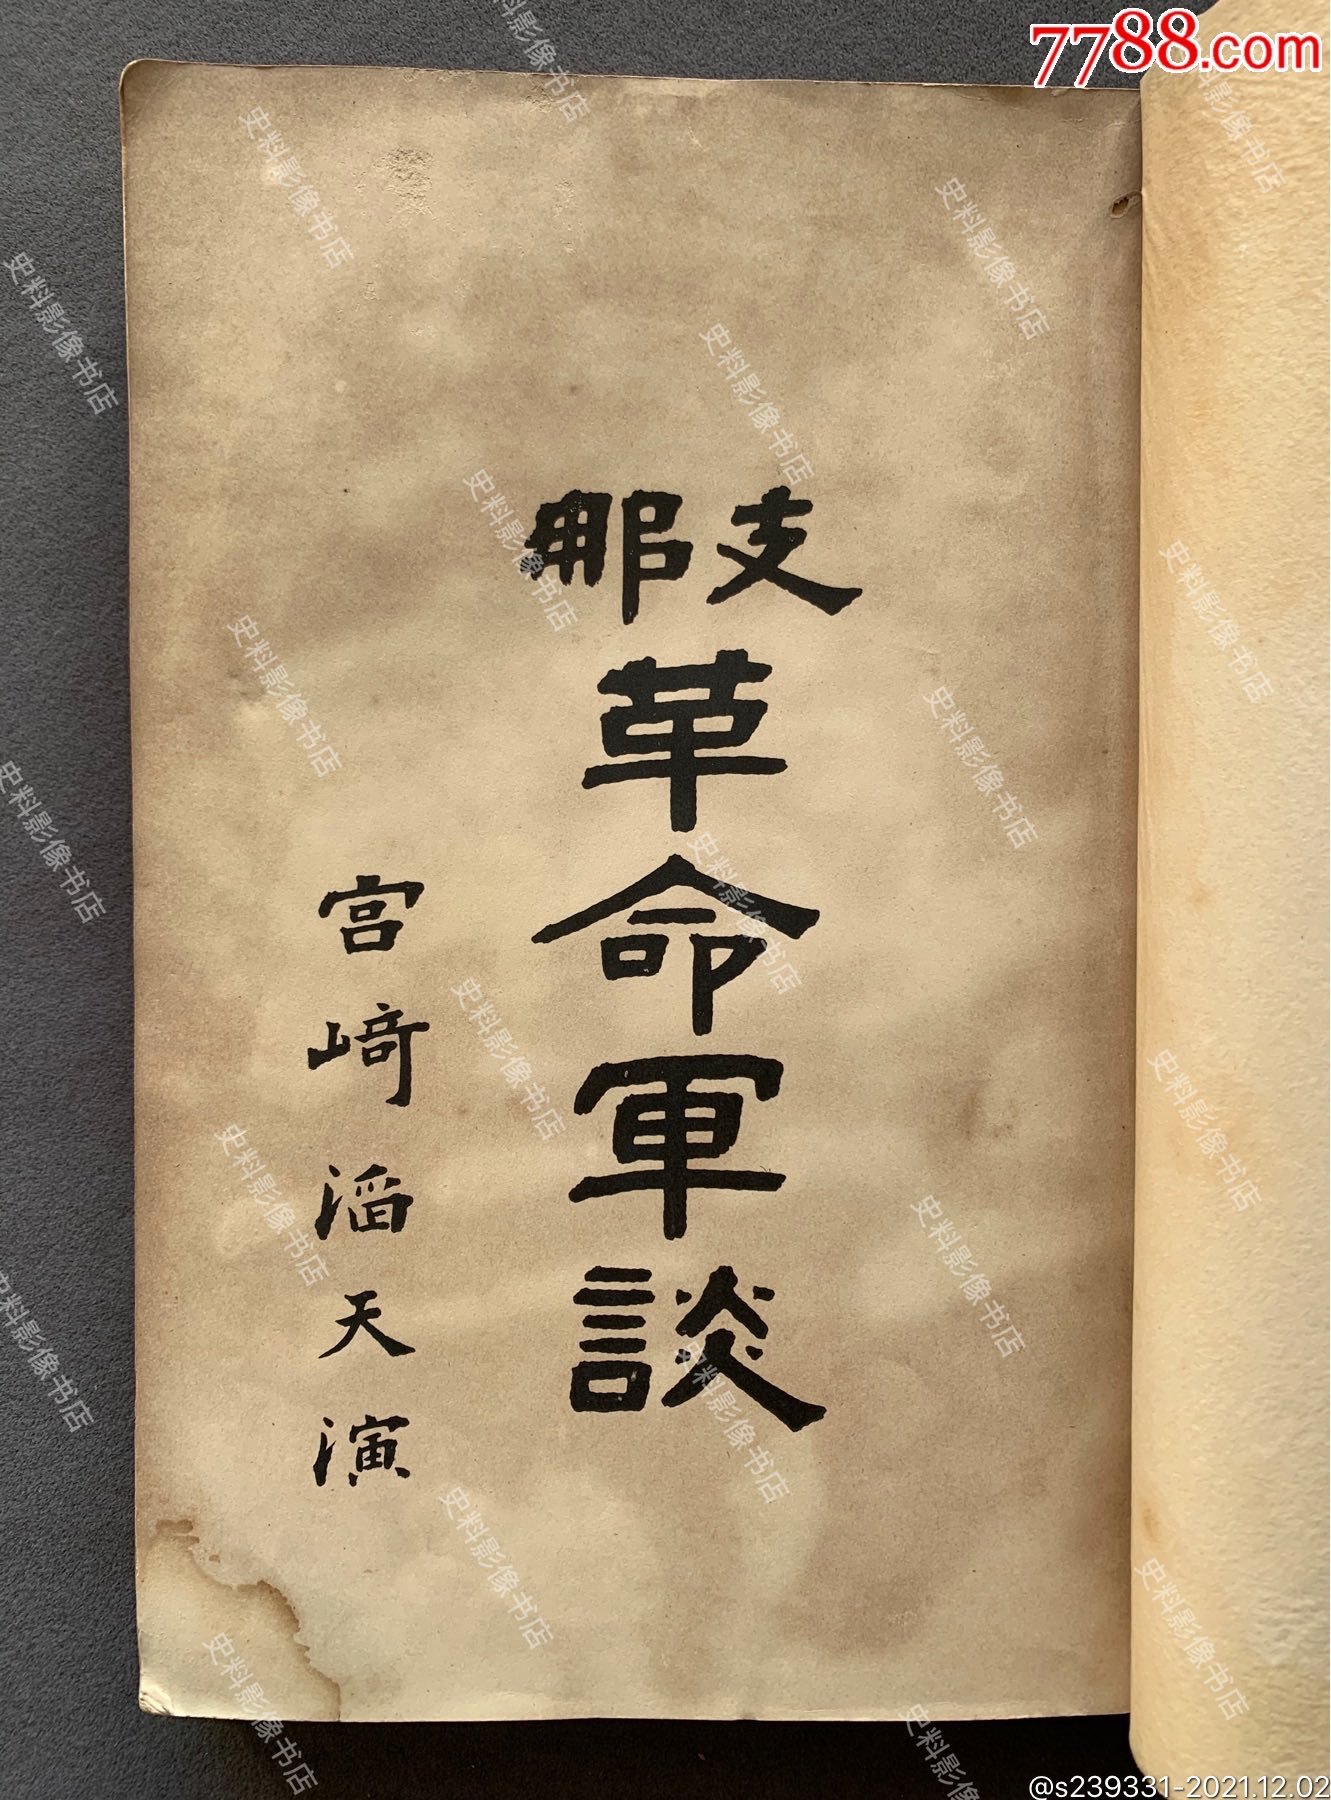 7788.com
支那
革命軍談
宮崎滔天演
史料影像书店
@s239331-2021.12.02